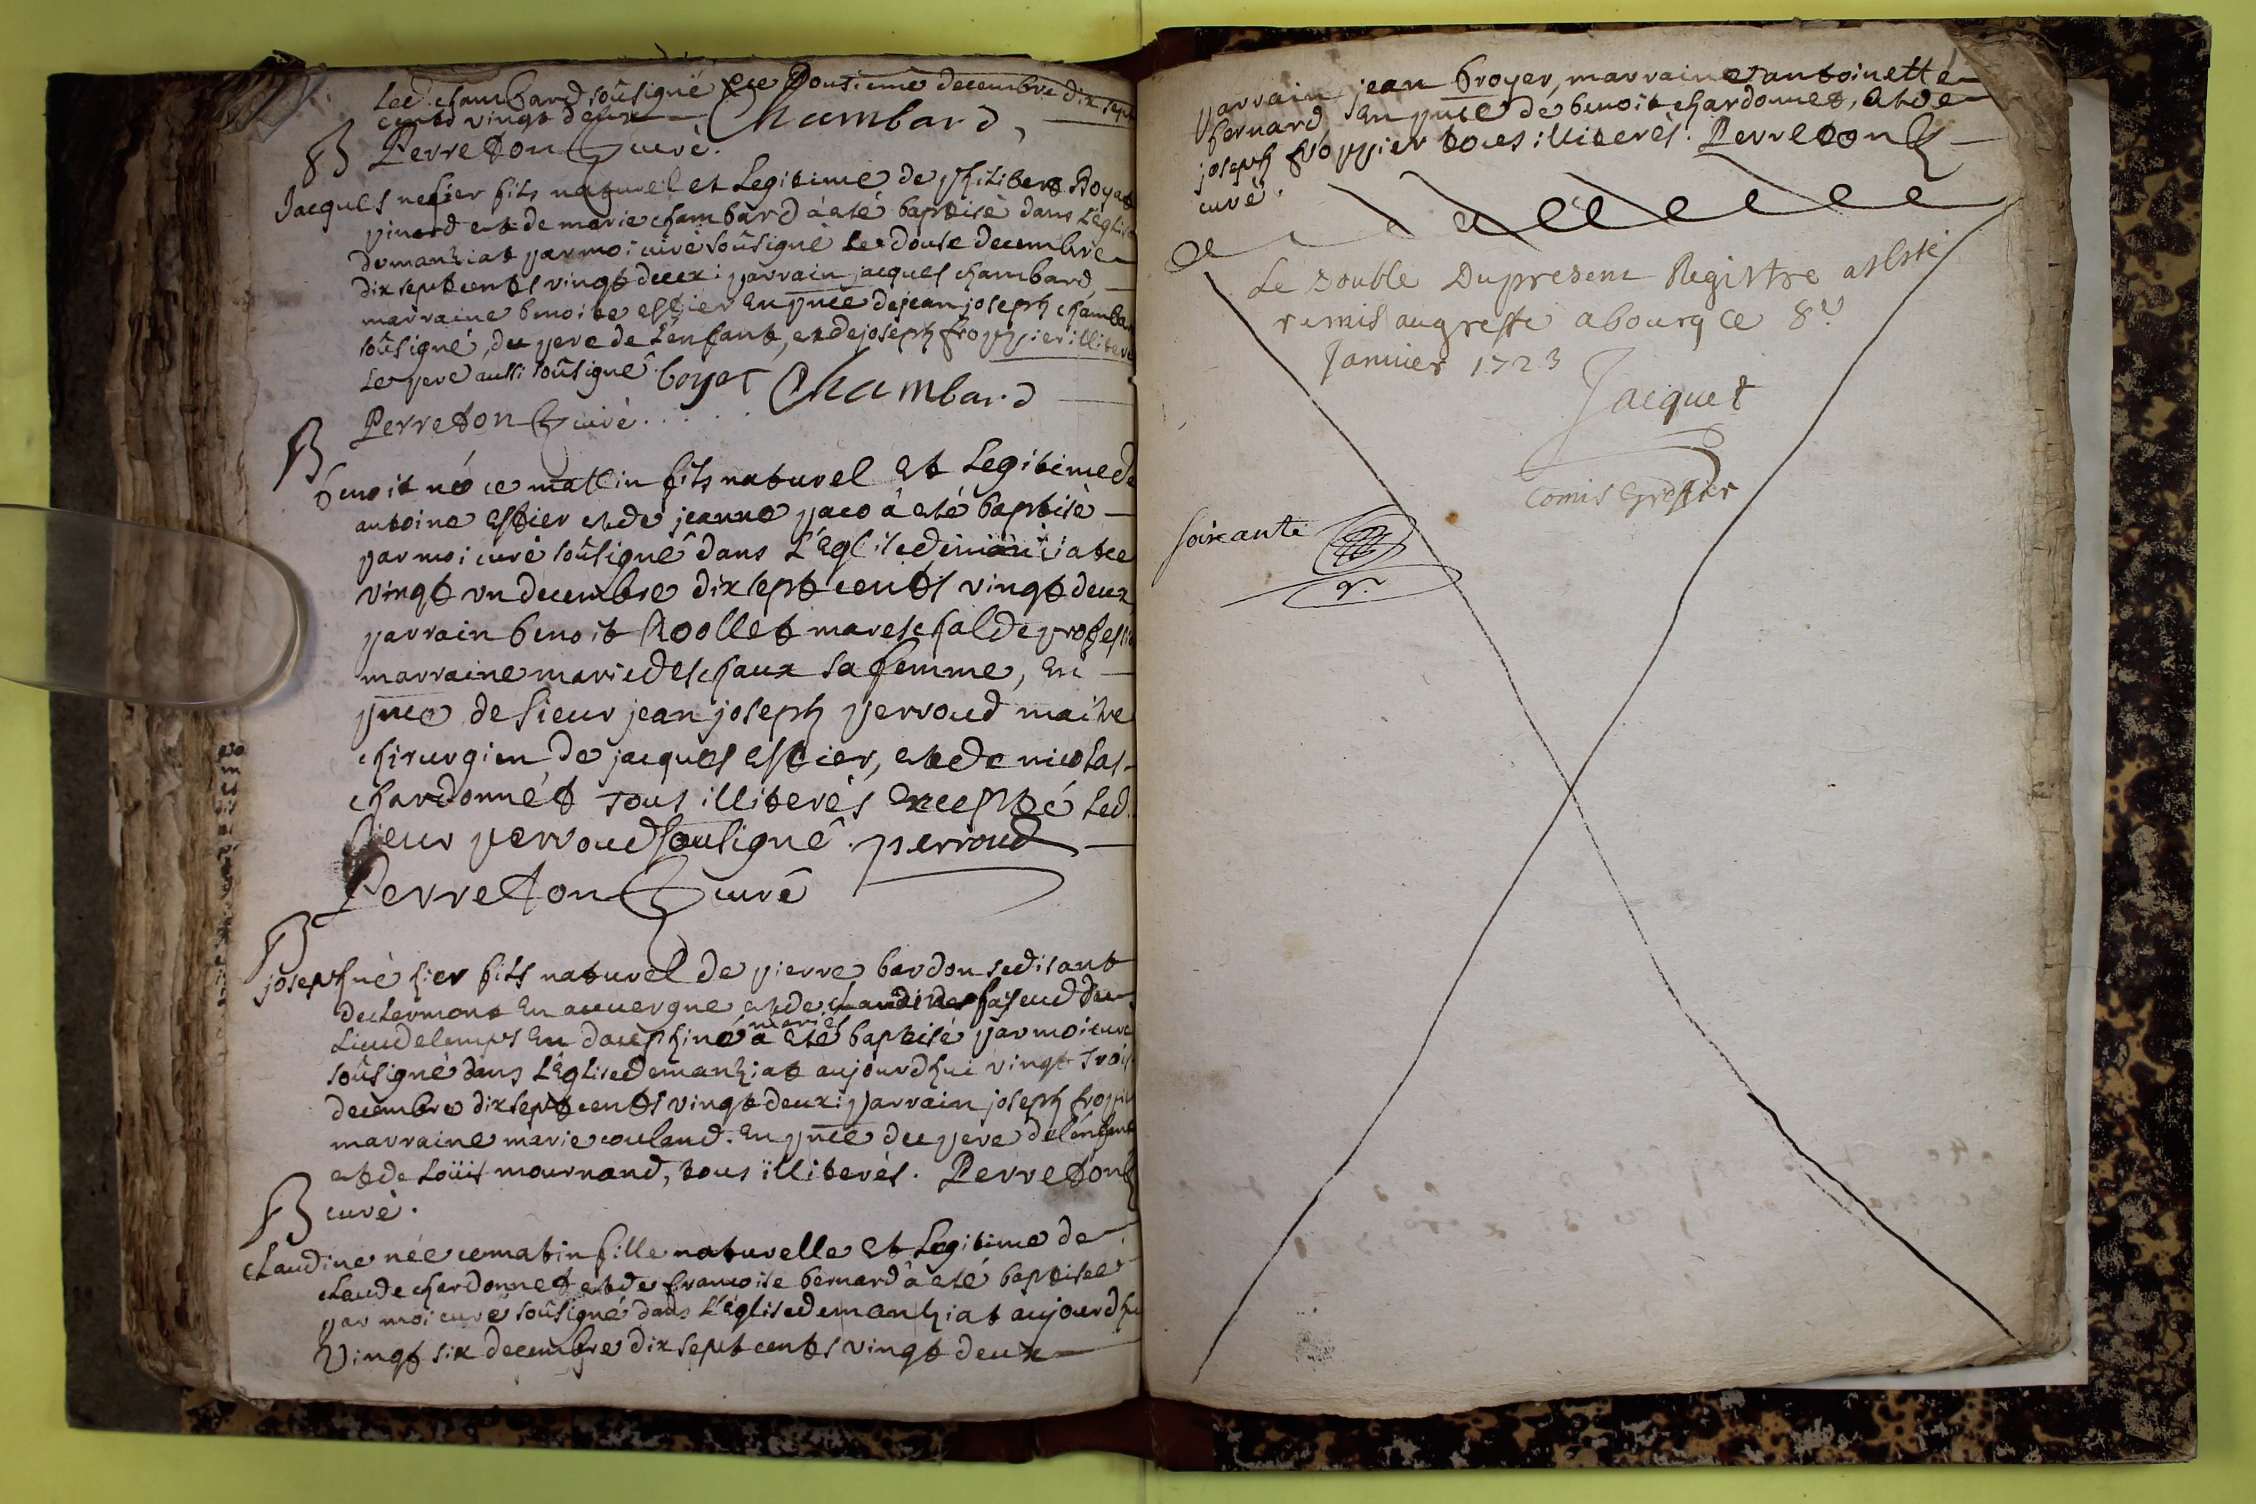 Led. chambard soûsigné ce Dousieme decembre dix sept
cents vingt deux Chambard
B Perreton curé.
Jacques né hier fils naturel et Legitime de philibert Boyat
pinard et de marie chambard à eté baptisé dans L'église
demanziat par moi curé soûsigné Le douse decembre
dix sept cents vingt deux: parrain jacques chambard,
marraine benoite estier En pnce de jean joseph chambard
soûsigné, du pere de L'enfant, et de joseph froppier illiteré
Le pere aussi soûsigné. boyat Chambard
Perreton curé.
B
benoit né ce mattin fils naturel et Legitime de
antoine Estier et de jeanne paco à eté baptisé
par moi curé soûsigné dans L'Eglise demanziat ce
vingt un decembre dix sept cents vingt deux
parrain benoit Rollet mareschal de profession
marraine marie deschaux sa femme, En
pnce de sieur jean joseph perroud maitre
chirurgien de jacques Estier, et de nicolas
chardonnét Tous illiterés Excepté Led.
sieur perroud soussigné. perroud
Perreton curé
B
joseph né hier fils naturel de pierre bardon se disant
de clermont En auvergne et de claudine faseud du
Lieu de lemps En dauphiné mariés à eté baptisé par moi curé
soûsigné dans L'Eglise demanziat aujourdhui vingt Trois
decembre dix sept cents vingt deux: parrain joseph froppier
marraine marie couland. En pnce du pere de L'enfant
et de Loüis mournand, tous illiterés. Perreton
B curé.
claudine née ce matin fille naturelle et Legitime de
claude chardonnet et de francoise bernard à eté baptisée
par moi curé soûsigné dans L'église demanziat aujourdhui
Vingt six decembre dix sept cents vingt deux
parrain jean broyer, marraine antoinette
bernard En pnce de benoit chardonnet, et de
joseph froppier tous illiterés. Perreton
curé.
Le Double Du present Registre a esté
remis au greffe a bourg ce 8e
Janvier 1723
Jacquet
Comis Greffier
soixante